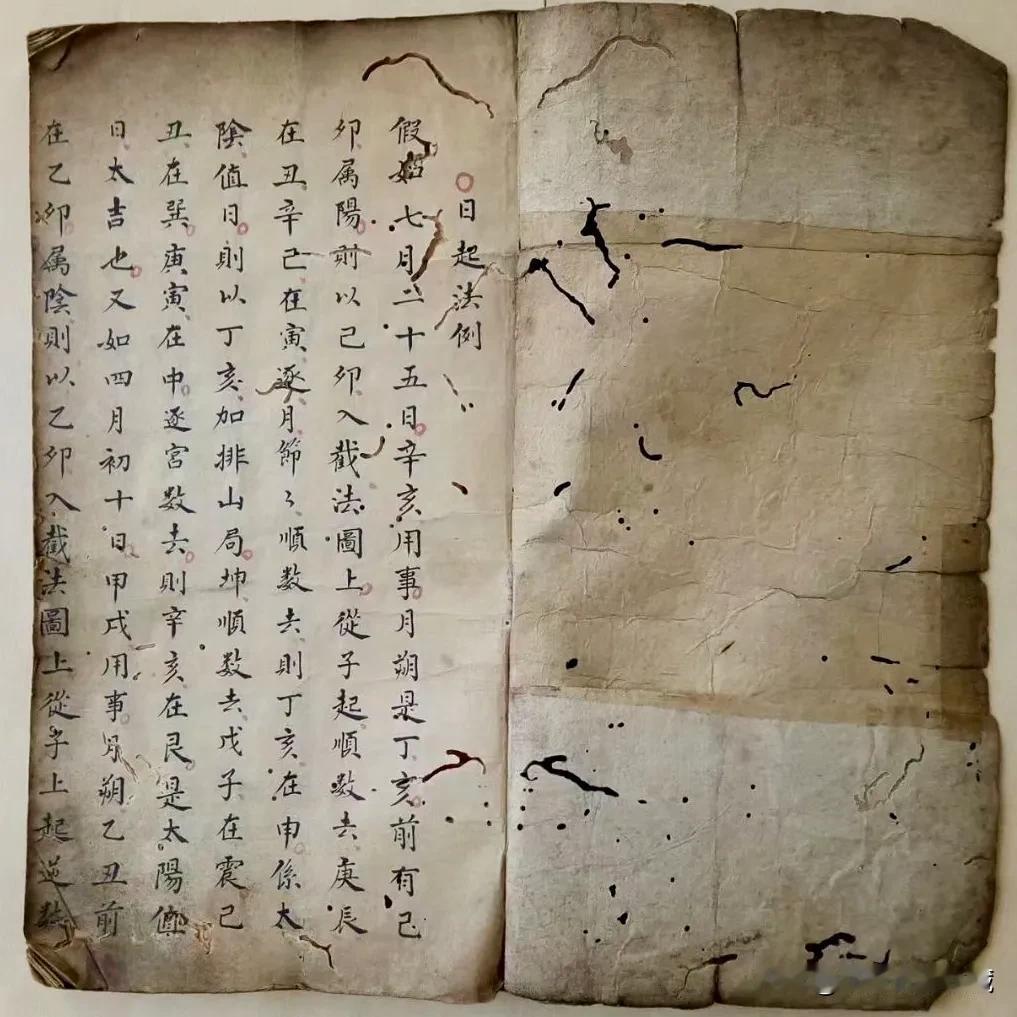 日起法例
假如七月二十五日辛亥用事月朔是丁亥前有己
卯属陽前以己卯入截法圖上從子起順数去庚辰
在丑辛己在寅逐月節々順数去則丁亥在申係太
陰值日則以丁亥加排山局坤順数去戊子在震己
丑在巽庚寅在中逐宮数去則辛亥在艮是太陽值
日太吉也又如四月初十日甲戌用事月朔乙丑前
在乙卯属陰則以乙卯入截法圖上從子上起逆数